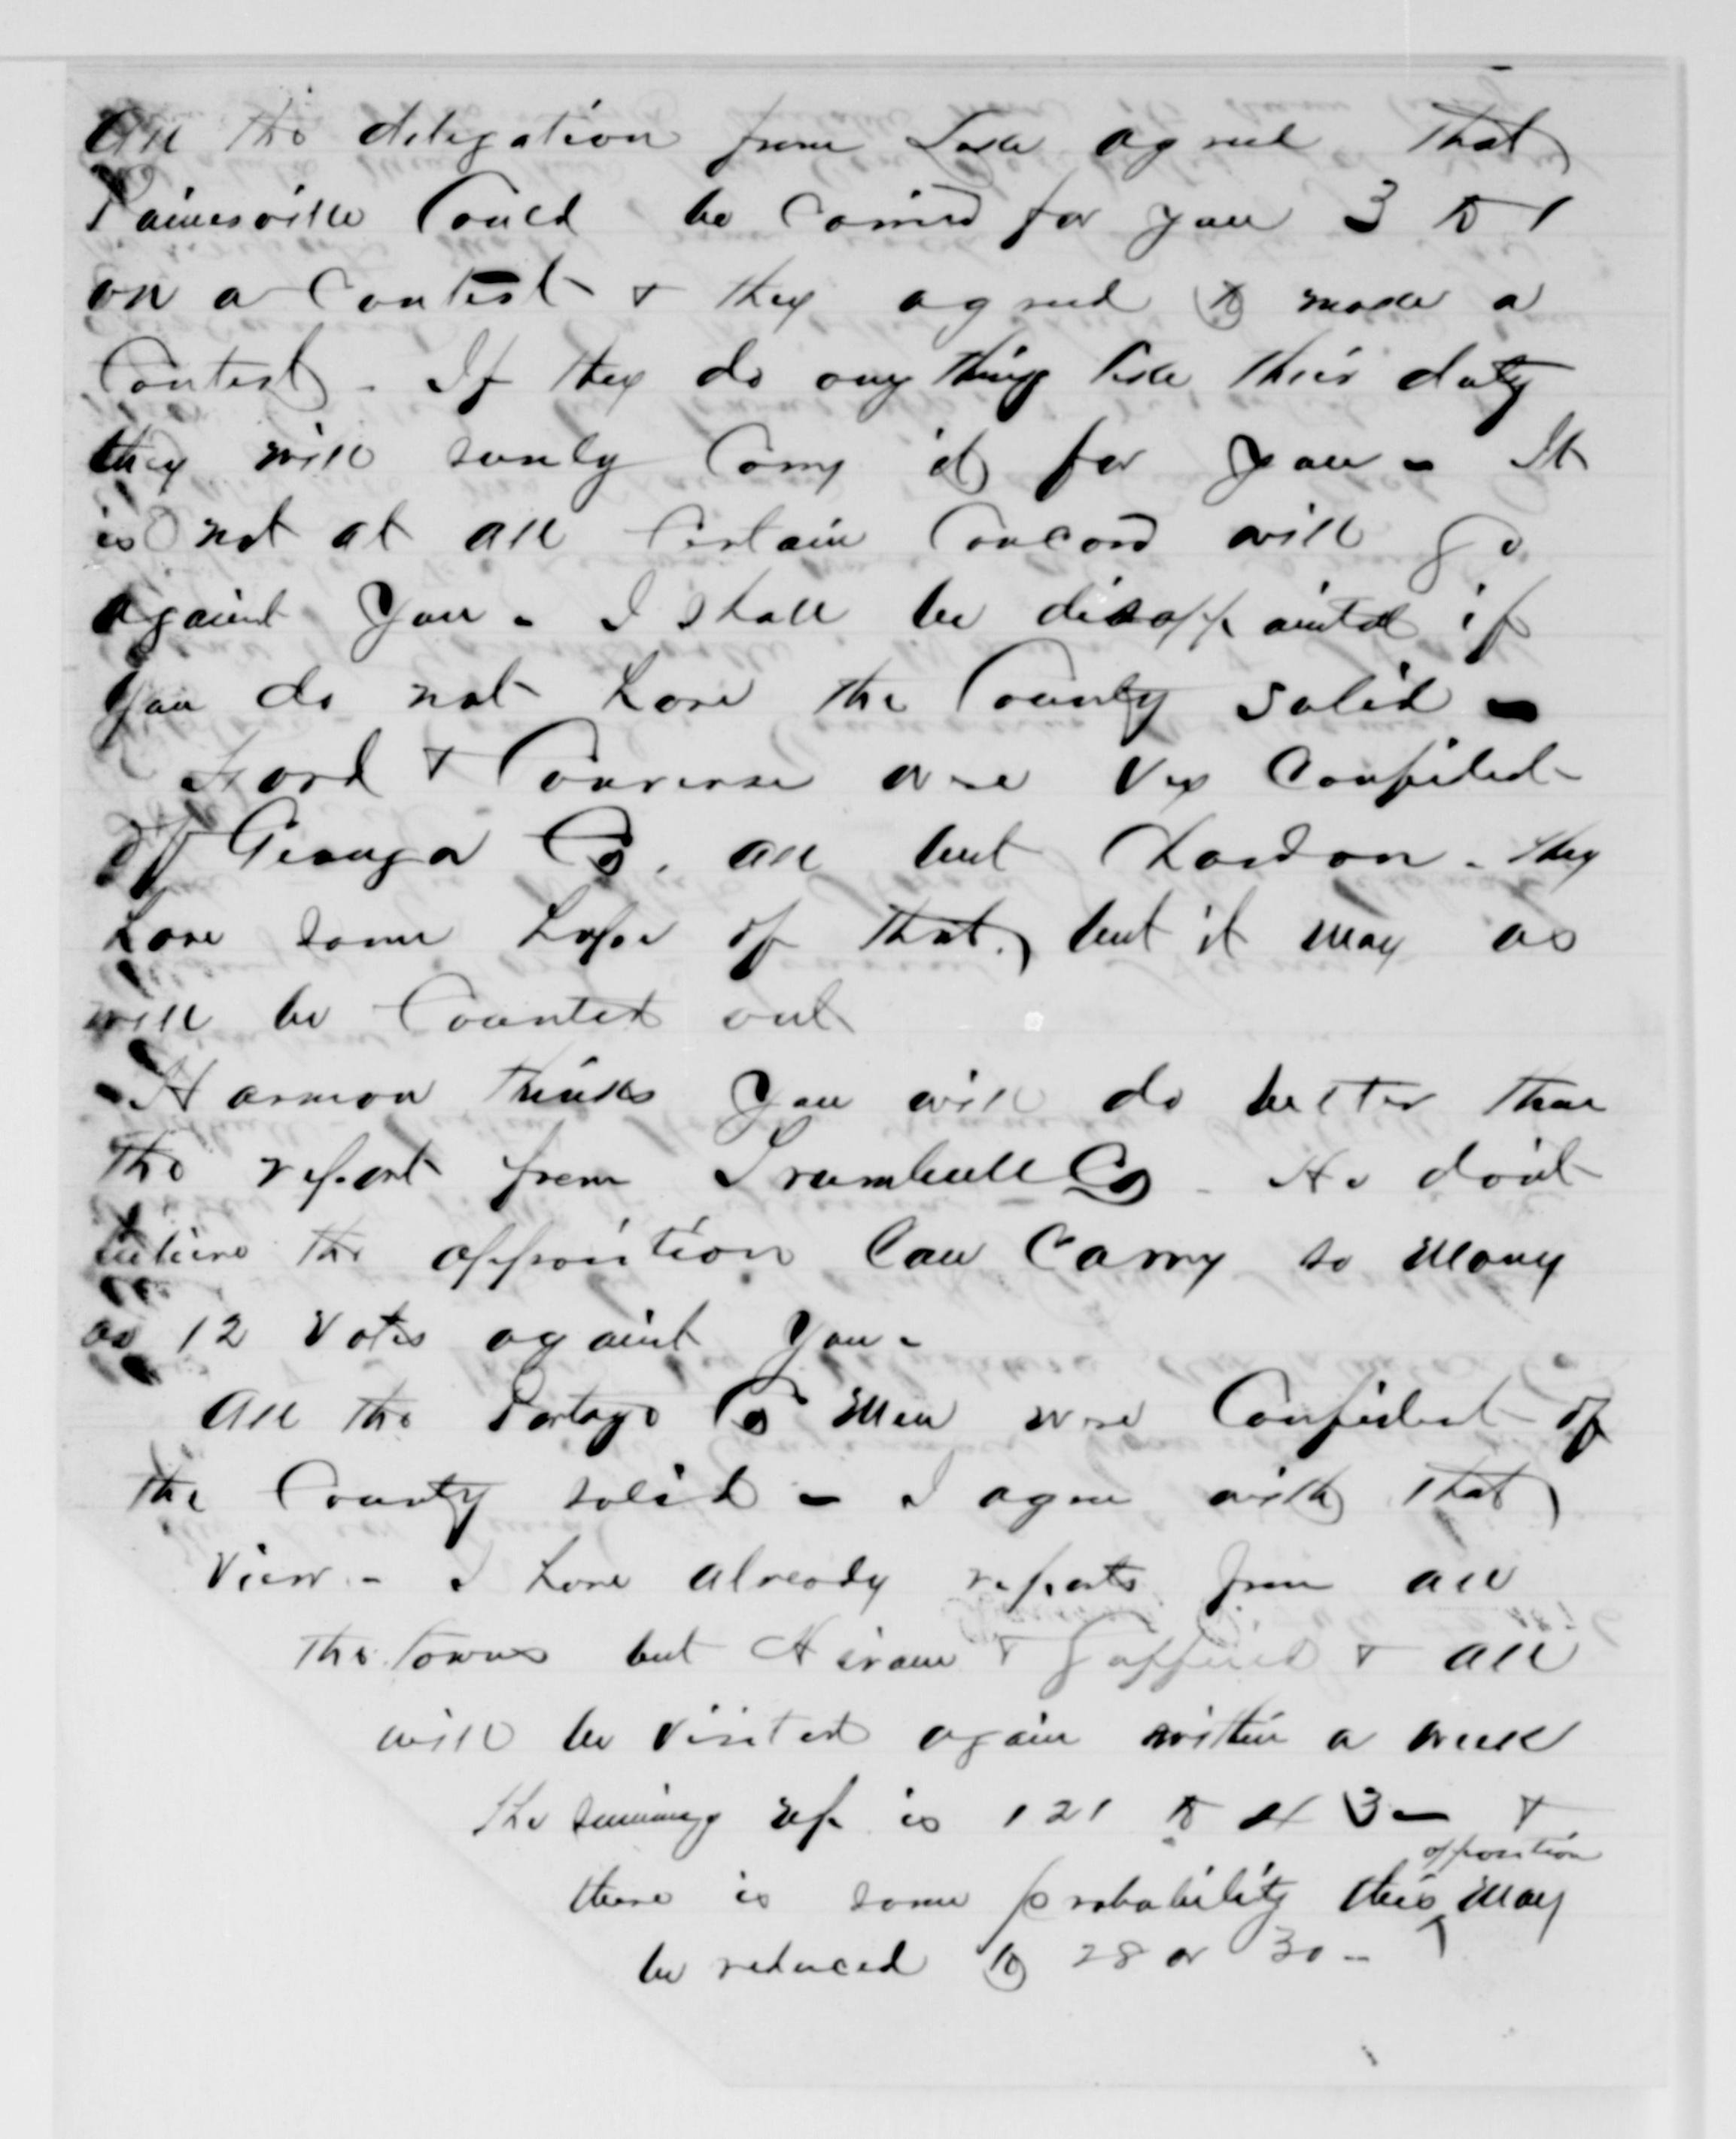 All the delegation from Lake agreed that
Painesville Could be Carried for you 3 to 1
on a Contest & they agreed to make a
Contest - If they do any thing like their duty
they will surely Carry it for you - It
is not at all Certain Concord will go
against you - I shall be disappointed if
you do not have the County solid -
Ford & Converse were very Confident
of Geauga Co. all but Chardon - they
have some hope of that, but it may as
well be Counted out
Harmon thinks you will do better than
the report from Trumbull Co - He don't
believe the opposition Can Carry so many
as 12 votes against you -
All the Portage Co men were Confident of
the County solid - I agree with that
view - I have already reports from all
the towns but Hiram & Suffield & all
will be visited again within a week
the summing up is 121 to 43 - &
there is some probability this opposition may
be reduced to 28 or 30 -